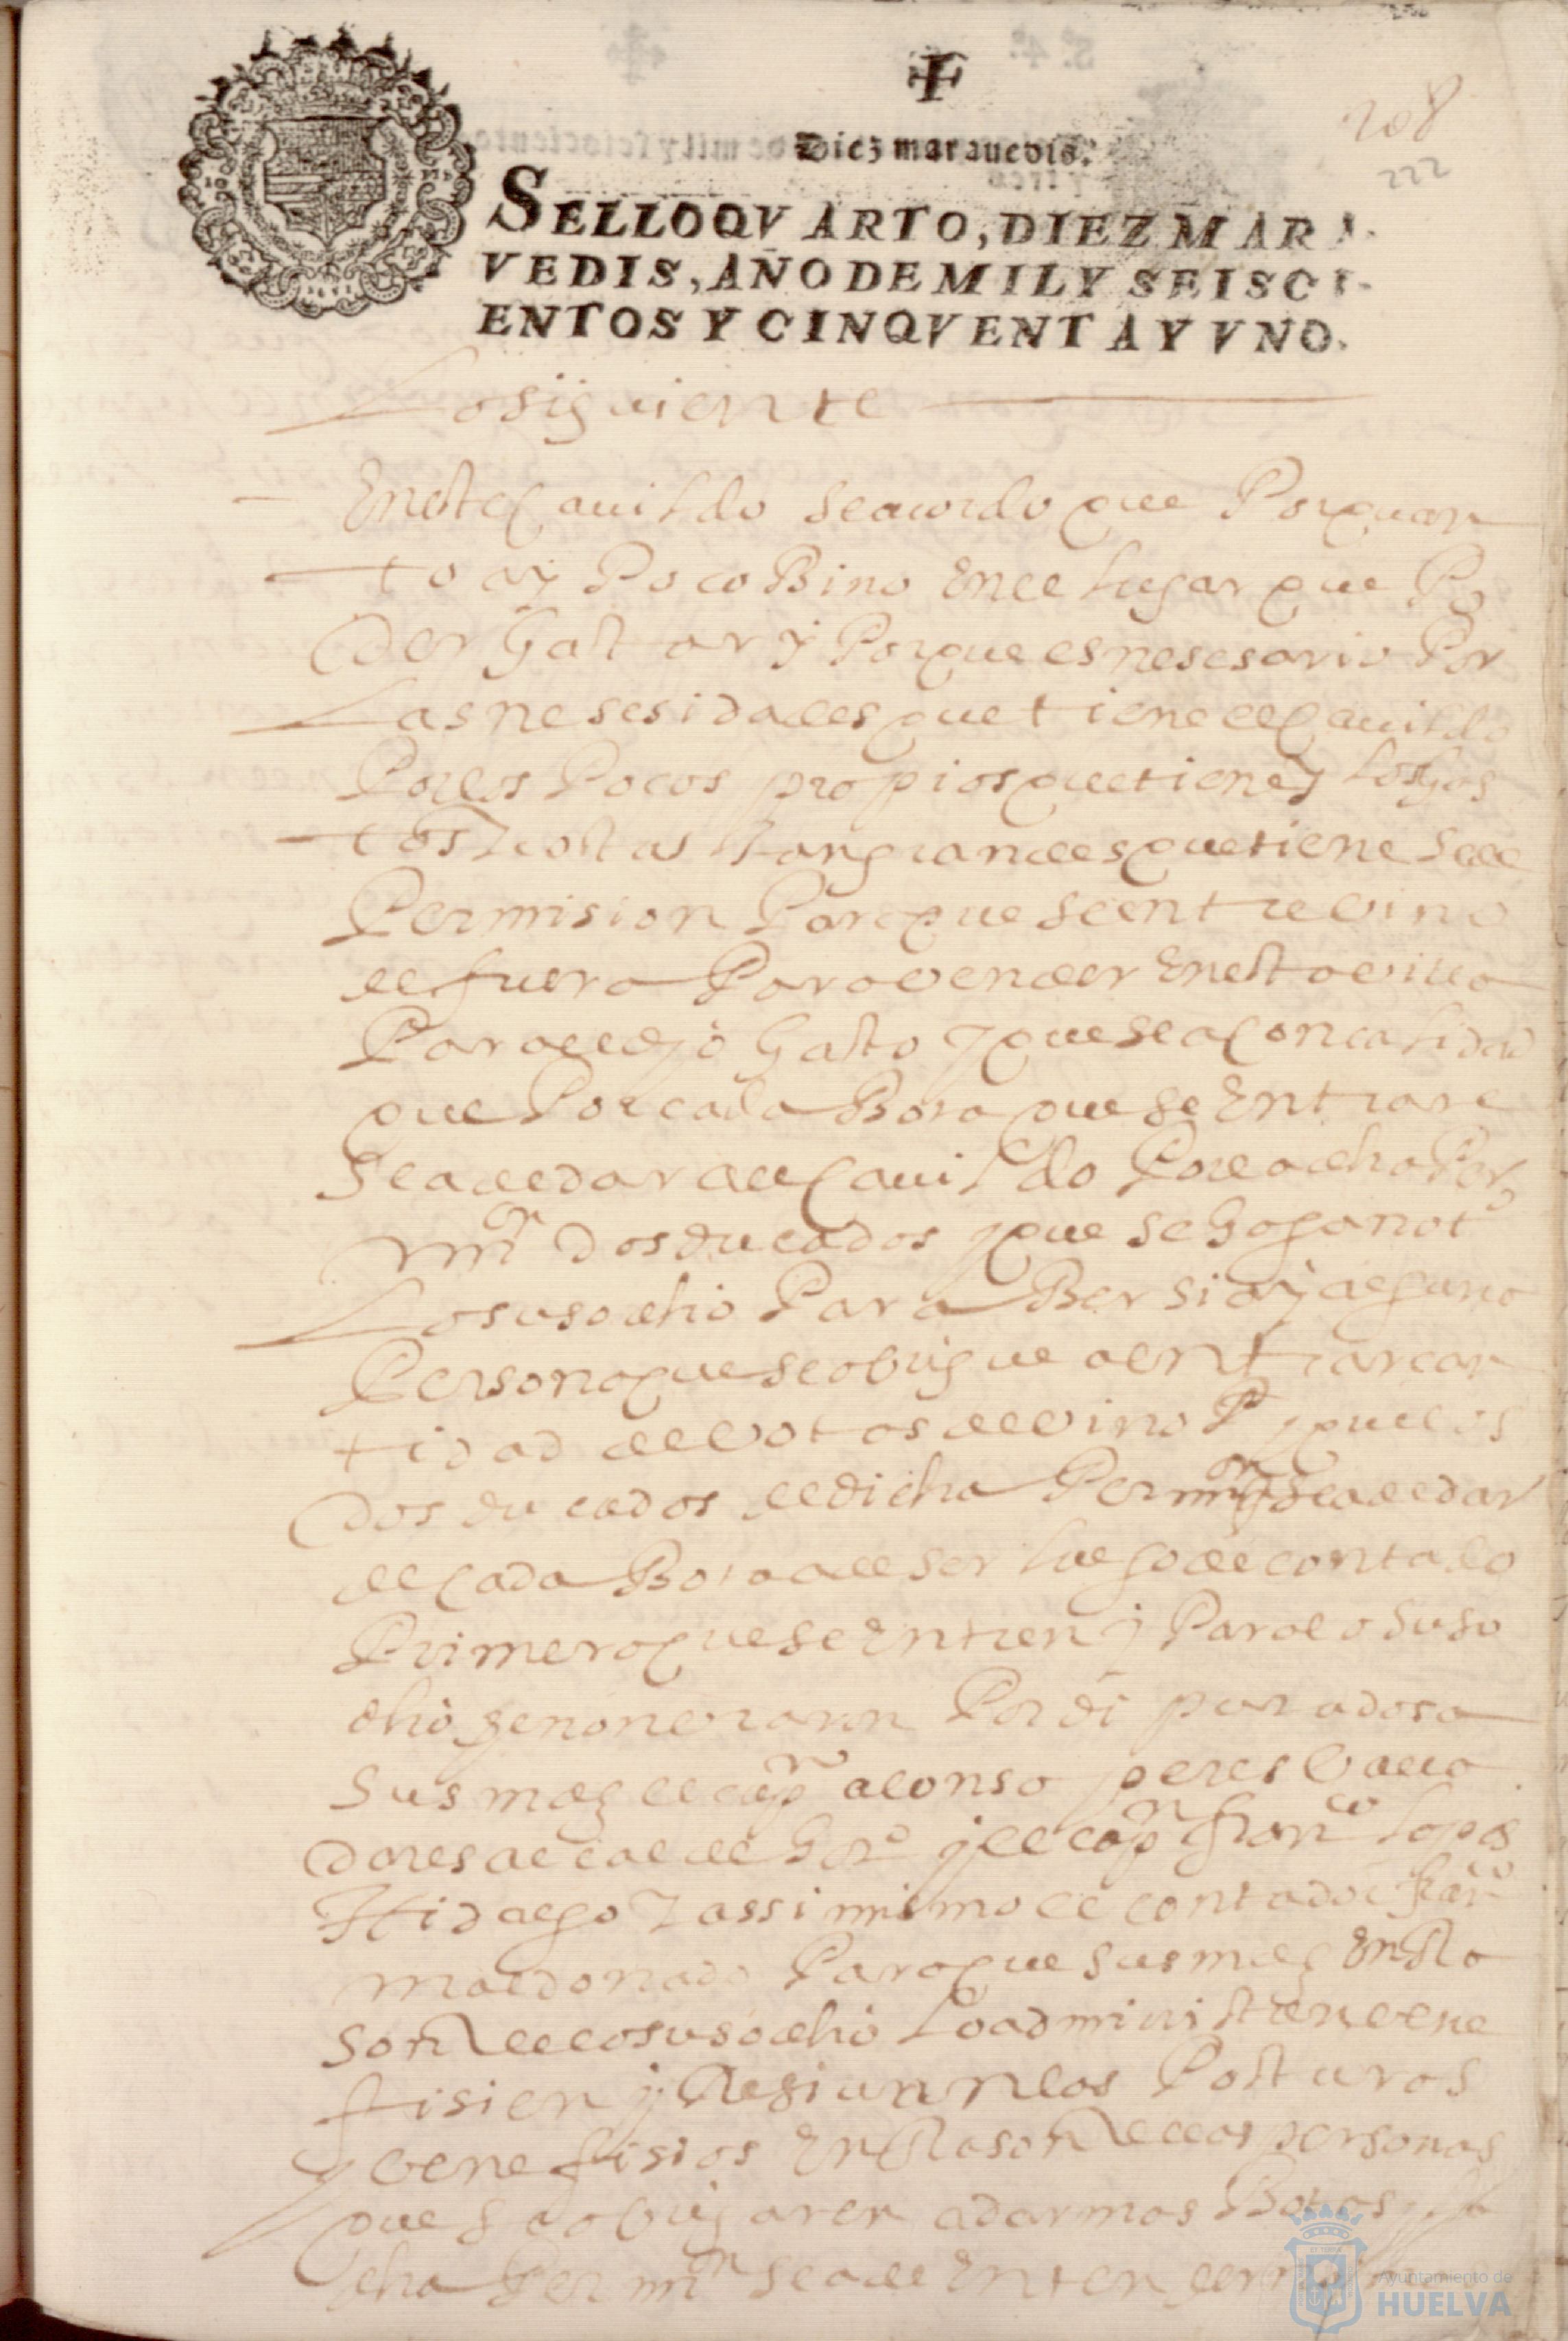 208
222
Diez marauedis.
SELLO QVARTO, DIEZ MARA-
VEDIS, AÑO DE MIL Y SEISCI-
ENTOS Y CINQVENTA Y VNO.
Lo siguiente
En este Cauildo se acordo que Por quan
to ay Poco Bino En el lugar que Po
der Gastar y Porque es nesesario Por
Las nesesidades que tiene el Cauildo
Por los Pocos propios que tiene y los Gas
tos y costas tan grandes que tiene se de
Permision Para que se entre vino
de fuera Para vender En esta villa
Para el dho Gasto y que sea Con calidad
que Por cada Bota que se Entrare
se a de dar al Cauildo Por la dha Per
mon dos ducados y que se Haga not
Lo susodicho Para Ber si ay alguna
Persona que se obligue a entrar can
tidad de botas de vino Pa y que los
dos ducados de dicha Permon se a de dar
de Cada Bota a de ser luego de contado
Primero que se Entren y Para lo suso
dho se nonbraron Por diputados a
sus mds el capn alonso peres Vaca
dores alcalde Horo y el capn franco Lopes
Hidalgo Y assimismo el contador franco
maldonado Para que sus mds En Ra
son de lo susodicho lo administren bene
fisien y Resiuan las Posturas
y benefisios En Rason de las personas
que se obligaren a dar mas Botas y la
dha Permon se a de Entender
Ayuntamiento de
HUELVA